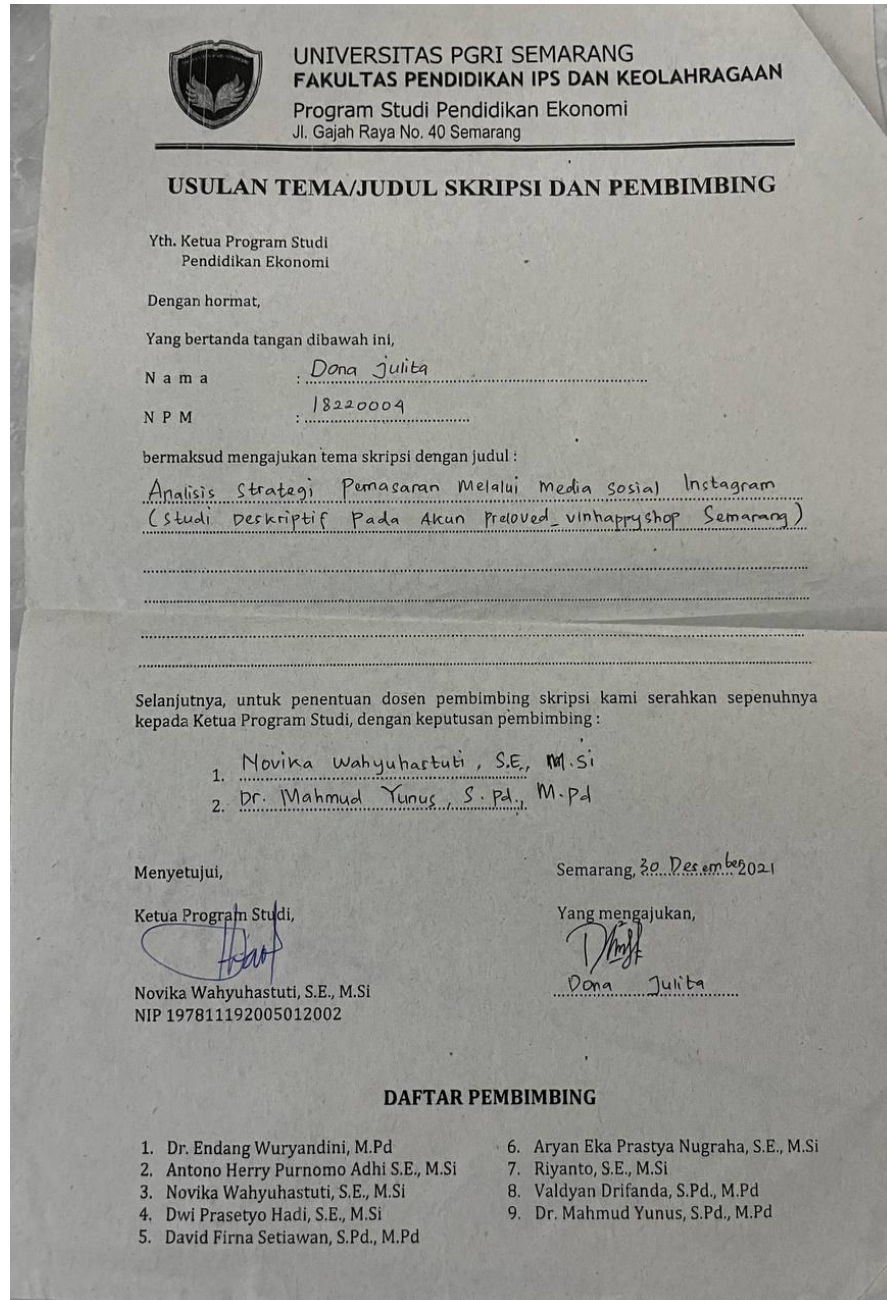 UNIVERSITAS PGRI SEMARANG
FAKULTAS PENDIDIKAN IPS DAN KEOLAHRAGAAN
Program Studi Pendidikan Ekonomi
Jl. Gajah Raya No. 40 Semarang
USULAN TEMA/JUDUL SKRIPSI DAN PEMBIMBING
Yth. Ketua Program Studi
Pendidikan Ekonomi
Dengan hormat,
Yang bertanda tangan dibawah ini,
N a m a : Dona Julita
N P M : 18220004
bermaksud mengajukan tema skripsi dengan judul :
Analisis Strategi Pemasaran Melalui Media Sosial Instagram
(Studi Deskriptif Pada Akun Preloved_vinhappyshop Semarang)
Selanjutnya, untuk penentuan dosen pembimbing skripsi kami serahkan sepenuhnya
kepada Ketua Program Studi, dengan keputusan pembimbing :
1. Novika Wahyuhartuti, S.E., M.Si
2. Dr. Mahmud Yunus, S.Pd., M.Pd
Menyetujui,
Semarang, 30 Desember 2021
Ketua Program Studi,
Yang mengajukan,
Dona Julita
Novika Wahyuhastuti, S.E., M.Si
NIP 197811192005012002
DAFTAR PEMBIMBING
1. Dr. Endang Wuryandini, M.Pd
2. Antono Herry Purnomo Adhi S.E., M.Si
3. Novika Wahyuhastuti, S.E., M.Si
4. Dwi Prasetyo Hadi, S.E., M.Si
5. David Firna Setiawan, S.Pd., M.Pd
6. Aryan Eka Prastya Nugraha, S.E., M.Si
7. Riyanto, S.E., M.Si
8. Valdyan Drifanda, S.Pd., M.Pd
9. Dr. Mahmud Yunus, S.Pd., M.Pd